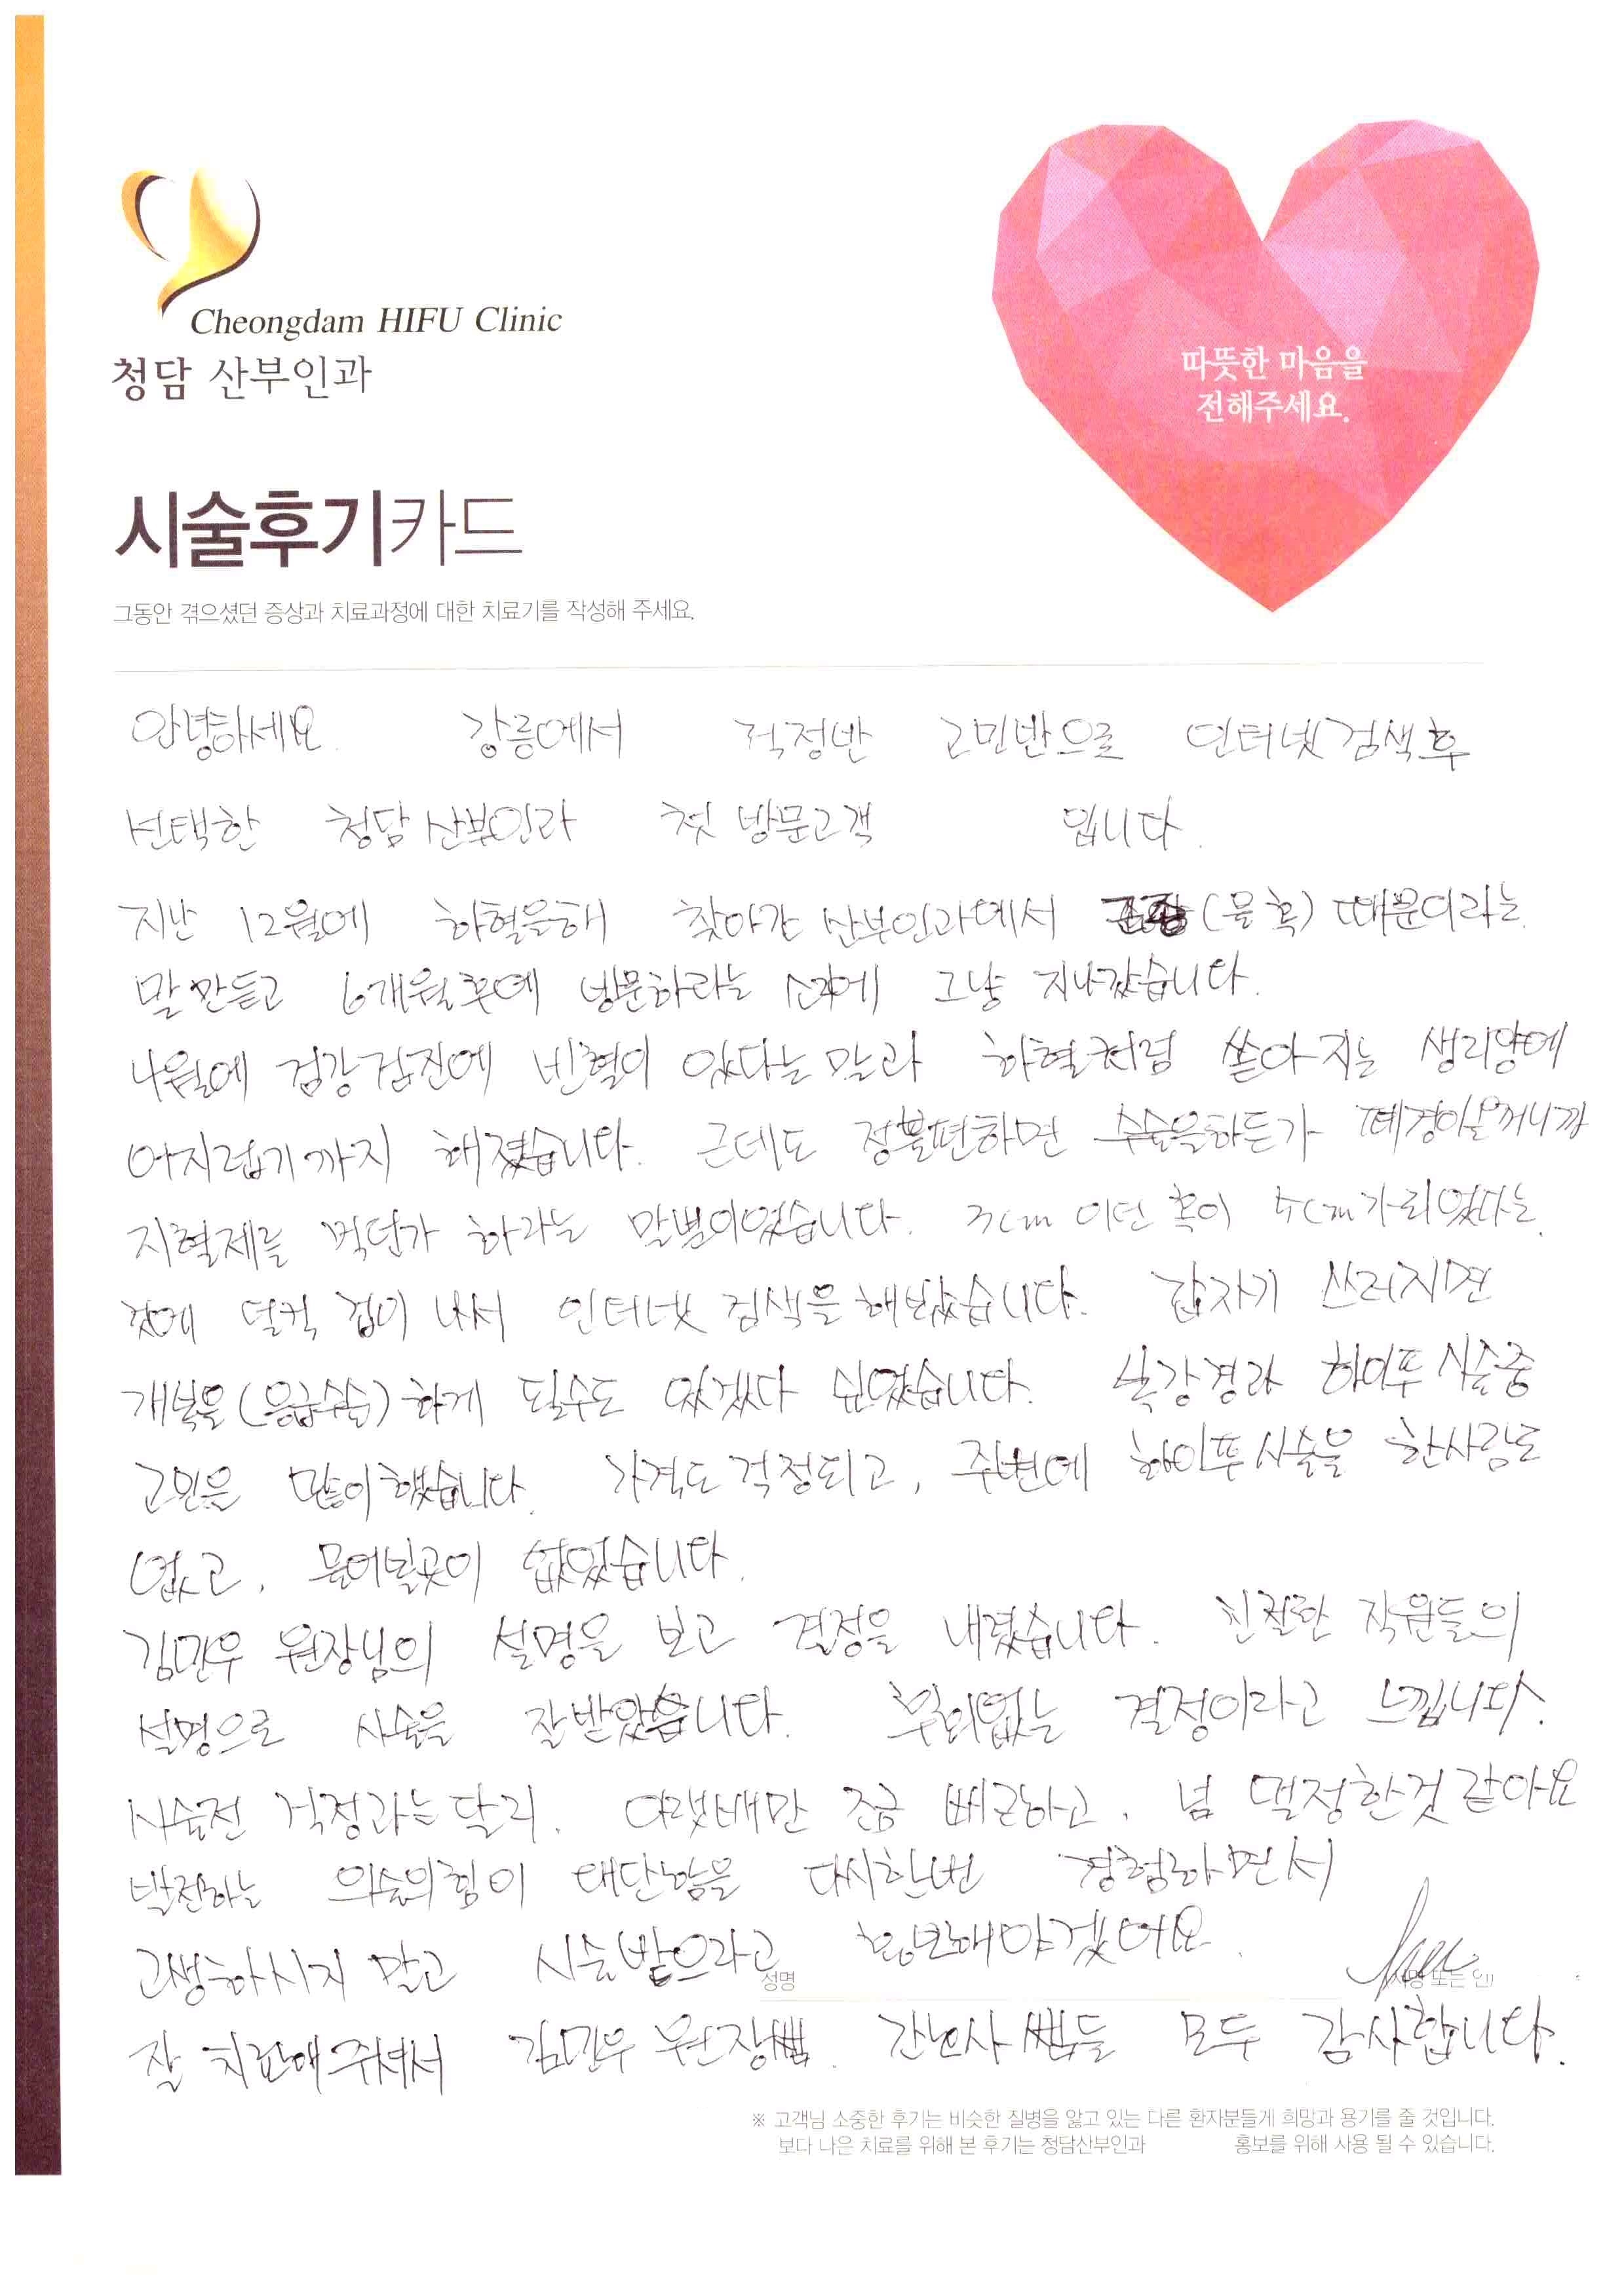 Cheongdam HIFU Clinic
청담 산부인과
따뜻한 마음을
전해주세요.
시술후기카드
그동안 겪으셨던 증상과 치료과정에 대한 치료기를 작성해 주세요.
안녕하세요. 강릉에서 걱정반 고민반으로 인터넷검색후
선택한 청담산부인과 첫 방문고객 입니다.
지난 12월에 하혈을해 찾아간 산부인과에서 (물혹) 때문이라는
말만듣고 6개월후에 방문하라는 그냥 지나갔습니다.
4월에 검강검진에 빈혈이 있다는 말과 하혈처럼 쏟아지는 생리양에
어지럽기까지 해졌습니다. 근데도 정불편하면 수술을하든가 폐경이올꺼니까
지혈제를 먹던가 하라는 말뿐이였습니다. 3cm 이던 혹이 5cm가 되였다는
것에 덜컥 겁이 나서 인터넷 검색을 해보았습니다. 갑자기 쓰러지면
개복을(응급수술)하게 될수도 있겠다 싶였습니다. 복강경과 하이푸 시술중
고민을 많이했습니다. 가격도 걱정되고, 주변에 하이푸시술을 한사람도
없고, 물어볼곳이 없었습니다.
김민우 원장님의 설명을 보고 결정을 내렸습니다. 친절한 직원들의
설명으로 시술을 잘받았습니다. 후회없는 결정이라고 느낍니다.
시술전 걱정과는 달리. 아랫배만 조금 뻐근하고, 넘 걱정한것 같아요
발전하는 의술의 힘이 대단함을 다시한번 경험하면서
고생하시지 말고 시술받으라고 홍보해야겠어요.
성명 (서명 또는 인)
잘 치료해주셔서 김민우 원장쌤. 간호사 쌤들 모두 감사합니다.
※ 고객님 소중한 후기는 비슷한 질병을 앓고 있는 다른 환자분들게 희망과 용기를 줄 것입니다.
보다 나은 치료를 위해 본 후기는 청담산부인과 홍보를 위해 사용 될 수 있습니다.